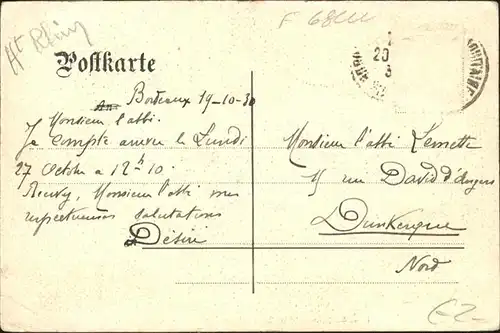 Ht Rhin
F 68CCC
Postkarte
20
3
Bordeaux 19-10-30
Monsieur l'abbé.
Je compte arriver le Lundi
27 Octobre a 12h 10.
Recevez, Monsieur l'abbé mes
respectueuses salutations
Désiré
Monsieur l'abbé
rue David d'Angers
Dunkerque
Nord